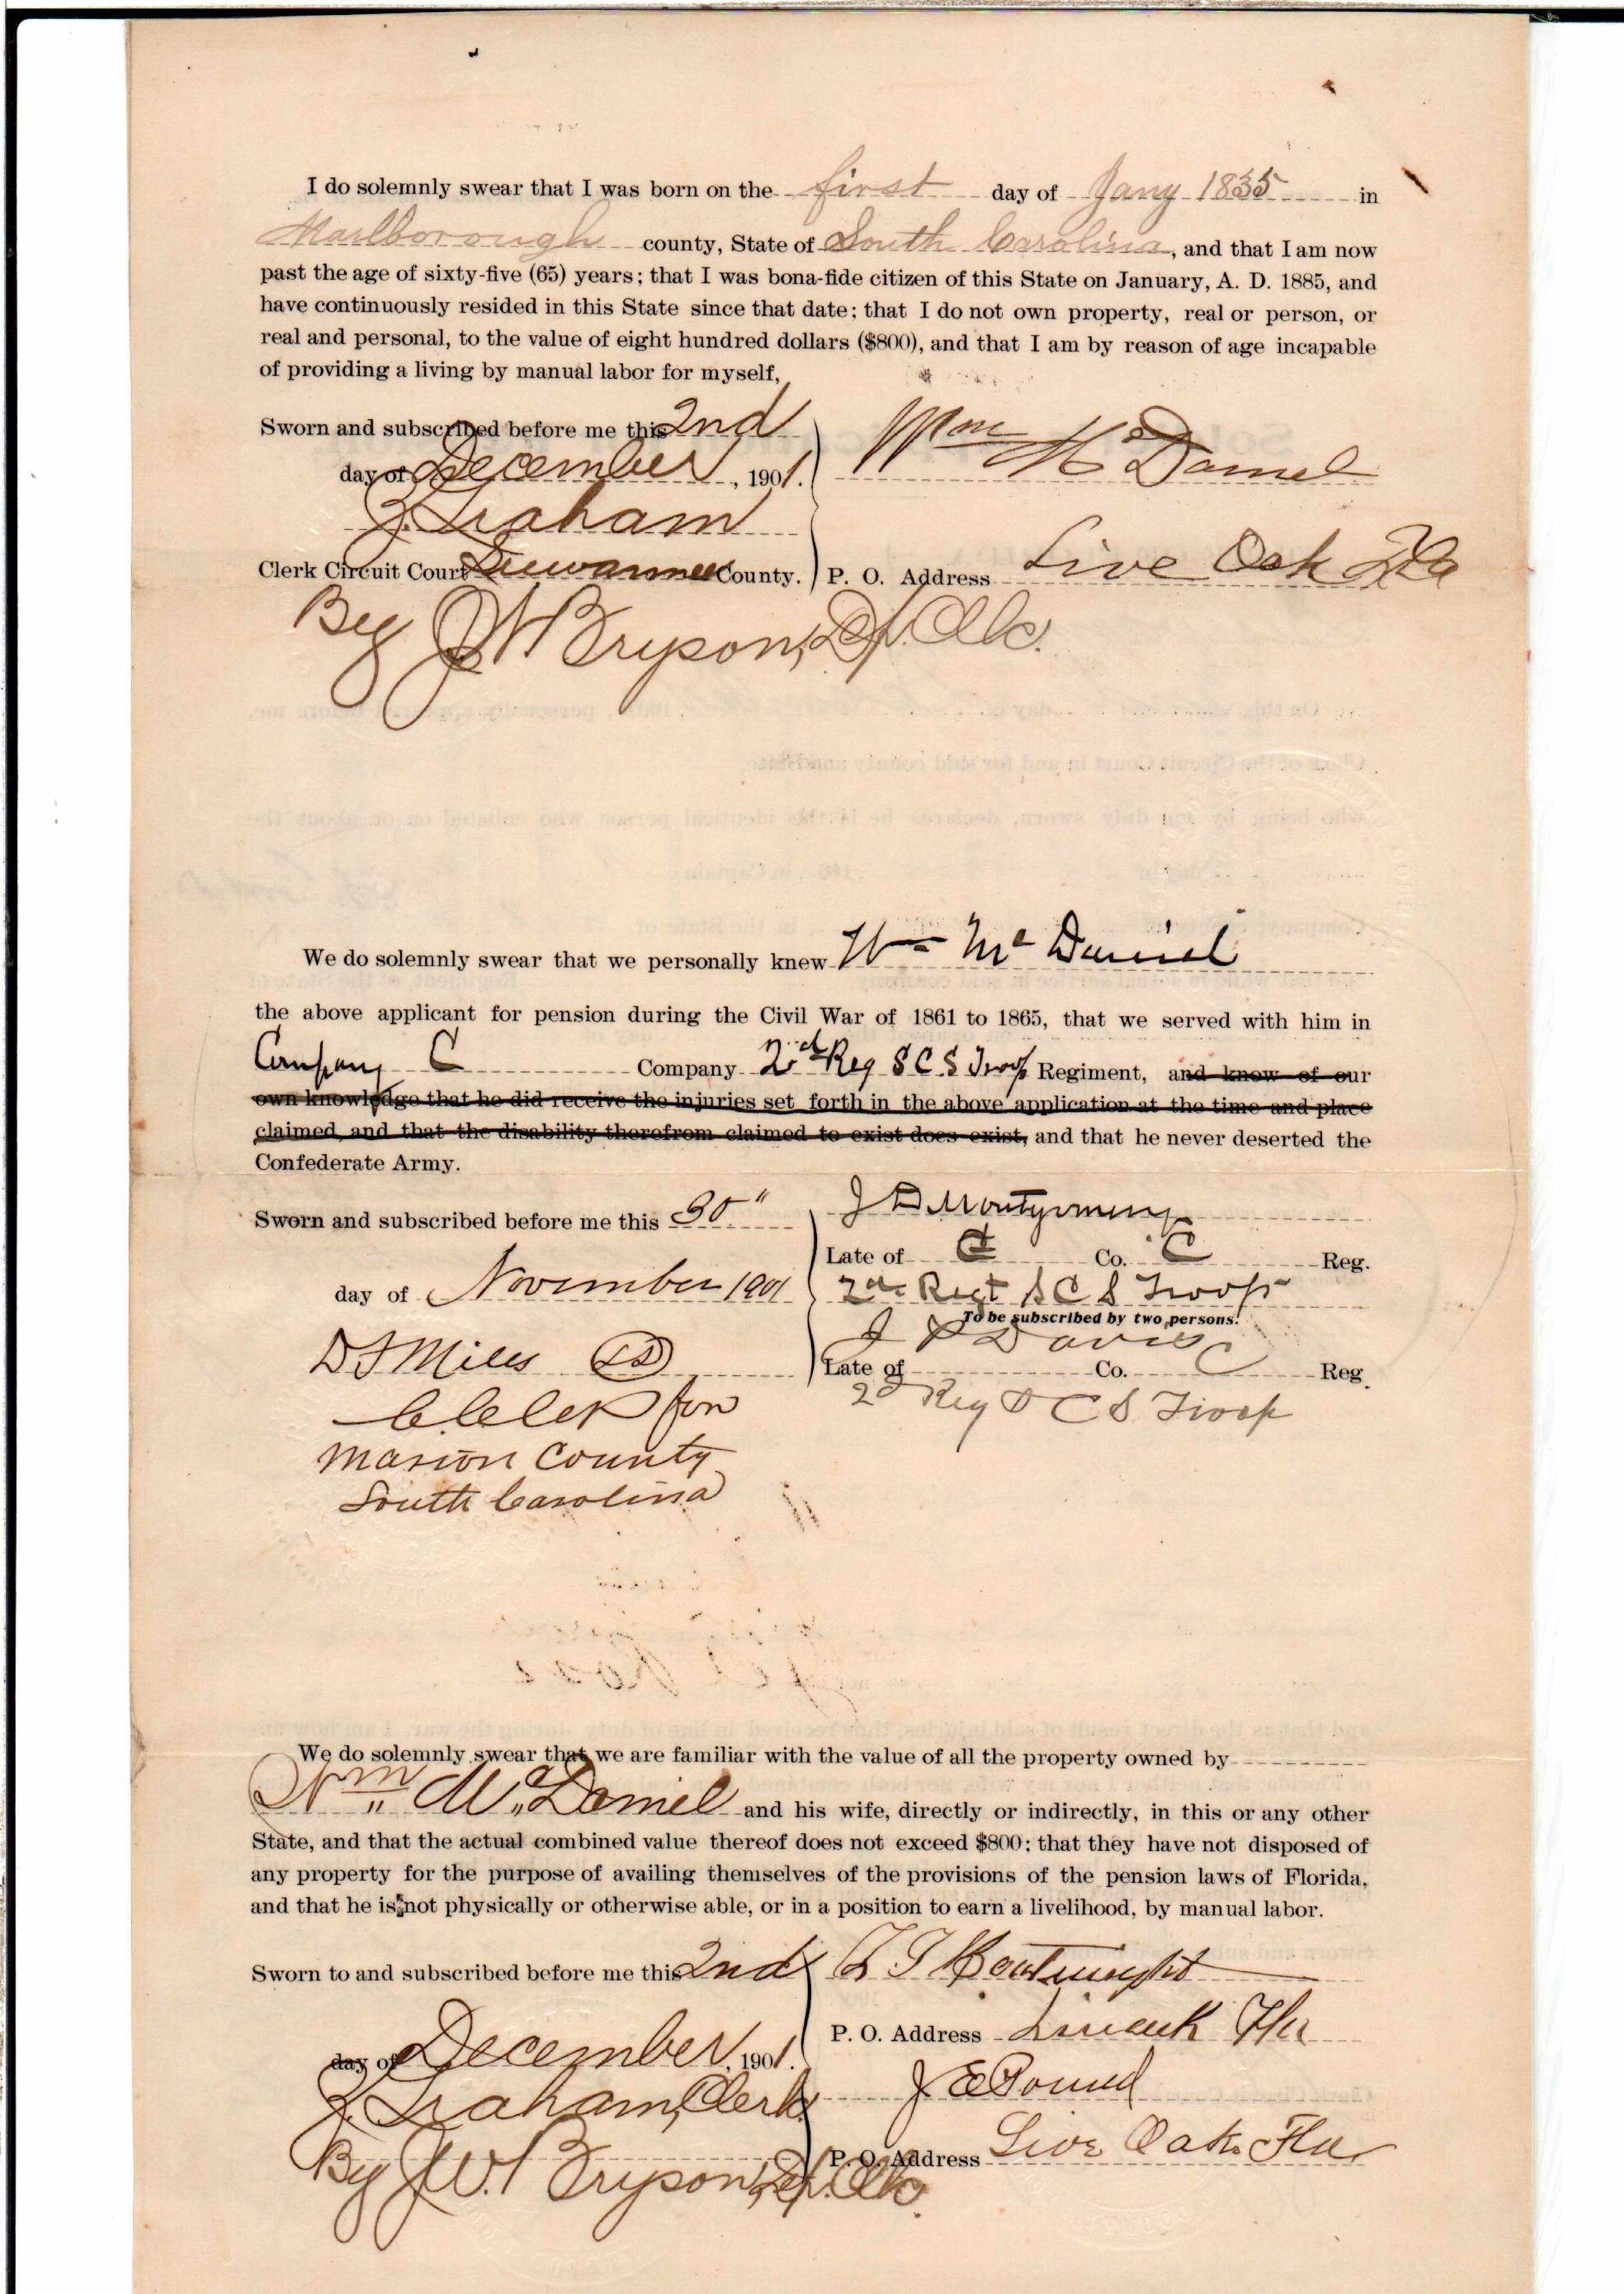 I do solemnly swear that I was born on the first day of Jany 1835 in
Marlborough county, State of South Carolina, and that I am now
past the age of sixty-five (65) years; that I was bona-fide citizen of this State on January, A. D. 1885, and
have continuously resided in this State since that date; that I do not own property, real or person, or
real and personal, to the value of eight hundred dollars ($800), and that I am by reason of age incapable
of providing a living by manual labor for myself,
Sworn and subscribed before me this 2nd
day of December, 1901. Wm McDaniel
Graham
Clerk Circuit Court Suwannee County. P. O. Address Live Oak Fla
By J W Bryson, Dp. Clk.
We do solemnly swear that we personally knew Wm McDaniel
the above applicant for pension during the Civil War of 1861 to 1865, that we served with him in
Company C Company 2nd Reg S C S Troop Regiment, and know of our
own knowledge that he did receive the injuries set forth in the above application at the time and place
claimed, and that the disability therefrom claimed to exist does exist, and that he never deserted the
Confederate Army.
Sworn and subscribed before me this 30" J D Montgomery
Late of C Co. C Reg.
day of November 1901 2nd Regt S C S Troops
To be subscribed by two persons.
J Davis
D J Miles
Late of Co. C Reg.
C.C.C.P for 2d Reg S C S Troop
Marion County
South Carolina
We do solemnly swear that we are familiar with the value of all the property owned by
Wm McDaniel and his wife, directly or indirectly, in this or any other
State, and that the actual combined value thereof does not exceed $800; that they have not disposed of
any property for the purpose of availing themselves of the provisions of the pension laws of Florida,
and that he is not physically or otherwise able, or in a position to earn a livelihood, by manual labor.
Sworn to and subscribed before me this 2nd Boatwright
P. O. Address Fla
day of December, 1901.
Graham, Clerk J E Pound
P. O. Address Live Oak Fla
By J W. Bryson, Dp. Clk.